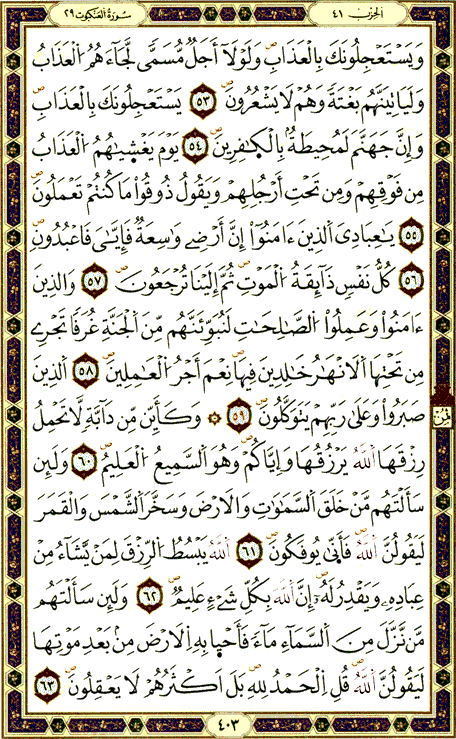 سُورَةُ الْعَنْكَبُوتِ ٢٩
الحِزْبُ ٤١
وَيَسْتَعْجِلُونَكَ بِالْعَذَابِ وَلَوْلَا أَجَلٌ مُّسَمًّى لَّجَاءَهُمُ الْعَذَابُ
وَلَيَأْتِيَنَّهُم بَغْتَةً وَهُمْ لَا يَشْعُرُونَ ٥٣ يَسْتَعْجِلُونَكَ بِالْعَذَابِ
وَإِنَّ جَهَنَّمَ لَمُحِيطَةٌ بِالْكَافِرِينَ ٥٤ يَوْمَ يَغْشَيٰهُمُ الْعَذَابُ
مِن فَوْقِهِمْ وَمِن تَحْتِ أَرْجُلِهِمْ وَيَقُولُ ذُوقُوا مَا كُنتُمْ تَعْمَلُونَ
٥٥ يَٰعِبَادِيَ الَّذِينَ ءَامَنُوا إِنَّ أَرْضِي وَاسِعَةٌ فَإِيَّايَ فَاعْبُدُونِ
٥٦ كُلُّ نَفْسٍ ذَائِقَةُ الْمَوْتِ ثُمَّ إِلَيْنَا تُرْجَعُونَ ٥٧ وَالَّذِينَ
ءَامَنُوا وَعَمِلُوا الصَّالِحَاتِ لَنُبَوِّئَنَّهُم مِّنَ الْجَنَّةِ غُرَفًا تَجْرِي
مِن تَحْتِهَا الْأَنْهَارُ خَالِدِينَ فِيهَا نِعْمَ أَجْرُ الْعَامِلِينَ ٥٨ الَّذِينَ
صَبَرُوا وَعَلَى رَبِّهِمْ يَتَوَكَّلُونَ ٥٩ ۞ وَكَأَيِّن مِّن دَابَّةٍ لَّا تَحْمِلُ
رِزْقَهَا اللَّهُ يَرْزُقُهَا وَإِيَّاكُمْ وَهُوَ السَّمِيعُ الْعَلِيمُ ٦٠ وَلَئِن
سَأَلْتَهُم مَّنْ خَلَقَ السَّمَٰوَٰتِ وَالْأَرْضَ وَسَخَّرَ الشَّمْسَ وَالْقَمَرَ
لَيَقُولُنَّ اللَّهُ فَأَنَّى يُوفَكُونَ ٦١ اللَّهُ يَبْسُطُ الرِّزْقَ لِمَن يَّشَاءُ مِنْ
عِبَادِهِ وَيَقْدِرُ لَهُ إِنَّ اللَّهَ بِكُلِّ شَيْءٍ عَلِيمٌ ٦٢ وَلَئِن سَأَلْتَهُم
مَّن نَّزَّلَ مِنَ السَّمَاءِ مَاءً فَأَحْيَا بِهِ الْأَرْضَ مِنْ بَعْدِ مَوْتِهَا
لَيَقُولُنَّ اللَّهُ قُلِ الْحَمْدُ لِلَّهِ بَلْ أَكْثَرُهُمْ لَا يَعْقِلُونَ ٦٣
٤٠٣